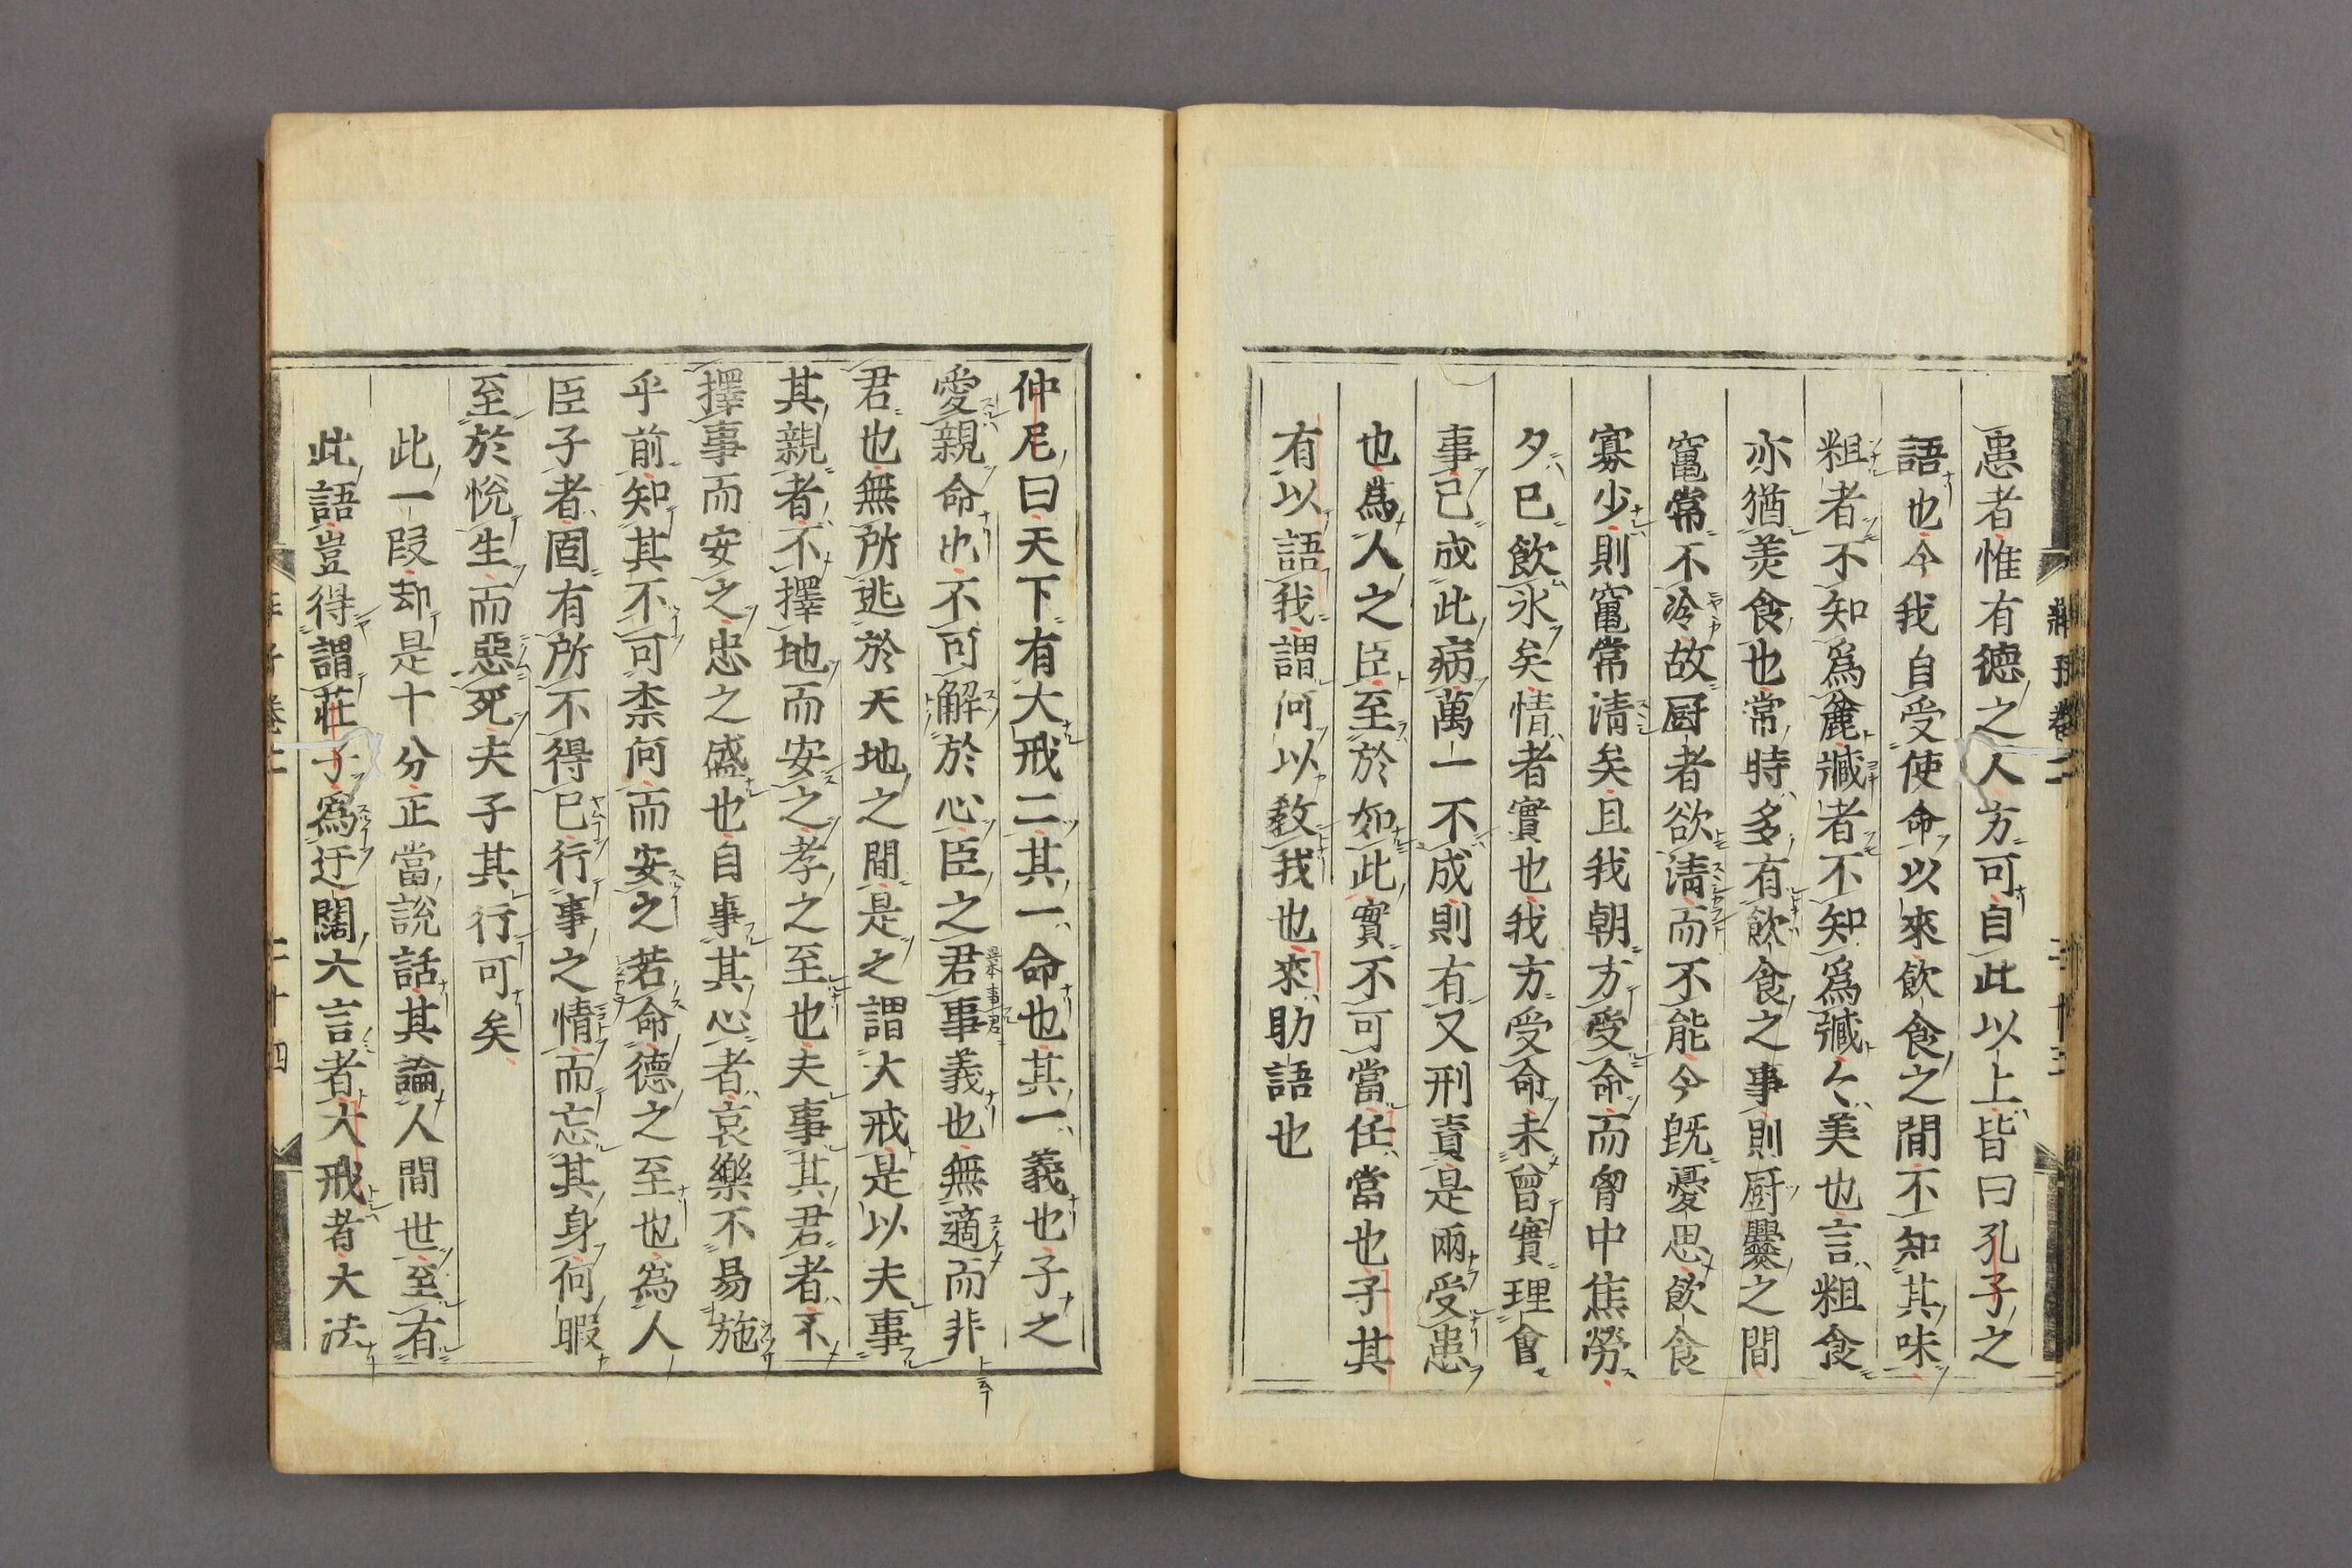 患者惟有德之人方可自此以上皆曰孔子之
語也今我自受使命以來飲食之間不知其味
粗者不知爲麄臧者不知爲臧〻美也言粗食
亦猶羙食也常時多有飲食之事則厨爨之間
竃常不冷故厨者欲清而不能今既憂思飲食
寡少則竃常清矣且我朝方受命而胷中焦勞
夕已飲氷矣情者實也我方受命未曾實理會
事已成此病萬一不成則有又刑責是兩受患
也為人之臣至於如此實不可當任當也子其
有以語我謂何以教我也來助語也
仲尼曰天下有大戒二其一命也其一義也子之
愛親命也不可解於心臣之君事義也無適而非
君也無所逃於天地之間是之謂大戒是以夫事
其親者不擇地而安之孝之至也夫事其君者不
擇事而安之忠之盛也自事其心者哀樂不易施
乎前知其不可柰何而安之若命德之至也爲人
臣子者固有所不得已行事之情而忘其身何暇
至於悅生而惡死夫子其行可矣
此一段却是十分正當說話其論人間世至有
此語豈得謂莊子爲迂闊大言者大戒者大法